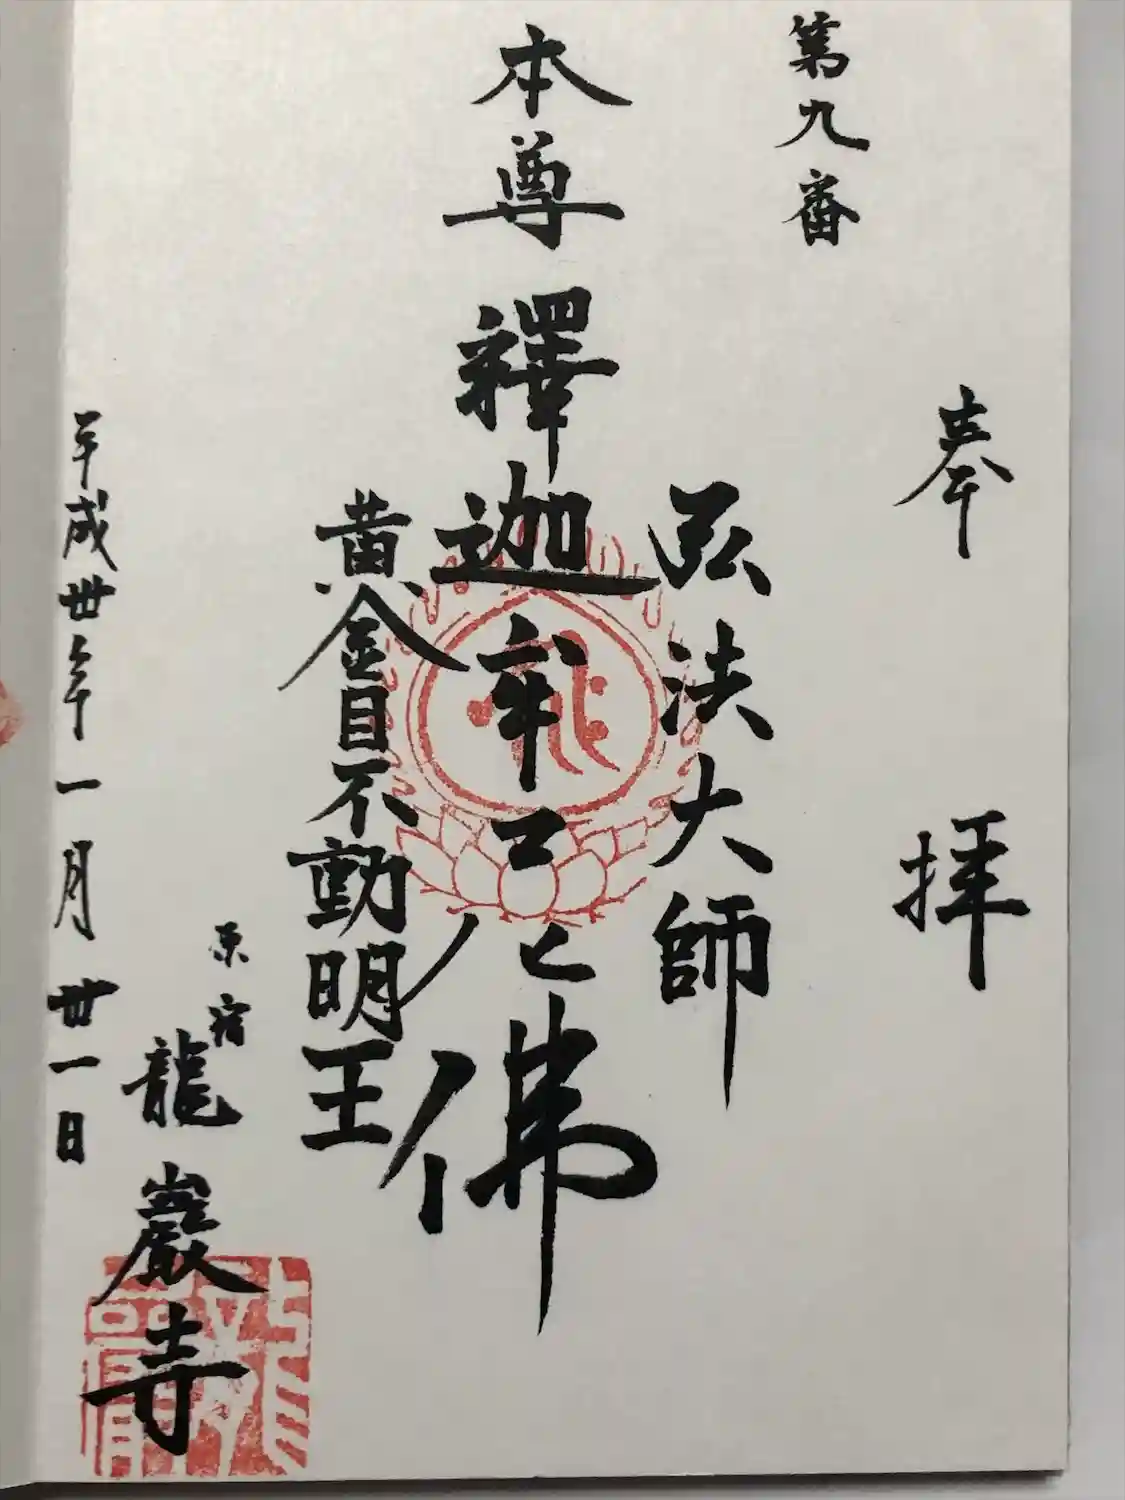 奉拝
第九番
弘法大師
本尊釋迦牟尼佛
黄金目不動明王
原宿
龍巖寺
平成丗年一月丗一日